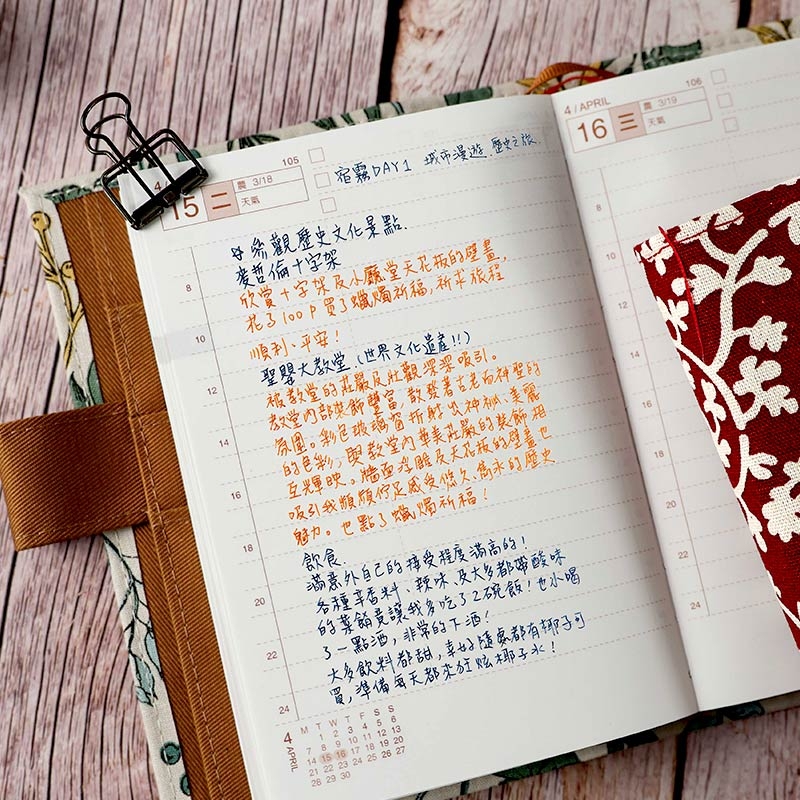 105
4
15 二
農 3/18
天氣
宿霧DAY1 城市漫遊.歷史之旅.
參觀歷史文化景點.
麥哲倫十字架
欣賞十字架及小廳堂天花板的壁畫,
花了100P買了蠟燭祈福,祈求旅程
順利、平安!
聖嬰大教堂(世界文化遺產!!)
被教堂的莊嚴及壯觀深深吸引。
教堂內部裝飾豐富,散發著古老而神聖的
氛圍。彩色玻璃窗折射出神祕、美麗
的色彩,與教堂內華美莊嚴的裝飾相
互輝映。牆面浮雕及天花板的壁畫也
吸引我頻頻佇足感受悠久、雋永的歷史
魅力。也點了蠟燭祈福!
飲食.
滿意外自己的接受程度滿高的!
各種辛香料、辣味及大多都帶酸味
的菜餚竟讓我多吃了2碗飯!也小喝
了一點酒,非常的下酒!
大多飲料都甜,幸好隨處都有椰子可
買,準備每天都來狂炫椰子水!
8
10
12
14
16
18
20
22
24
4 APRIL
M T W T F S S
1 2 3 4 5 6
7 8 9 10 11 12 13
14 15 16 17 18 19 20
21 22 23 24 25 26 27
28 29 30
106
4 / APRIL
16 三
農 3/19
天氣
8
10
12
14
16
18
20
22
24